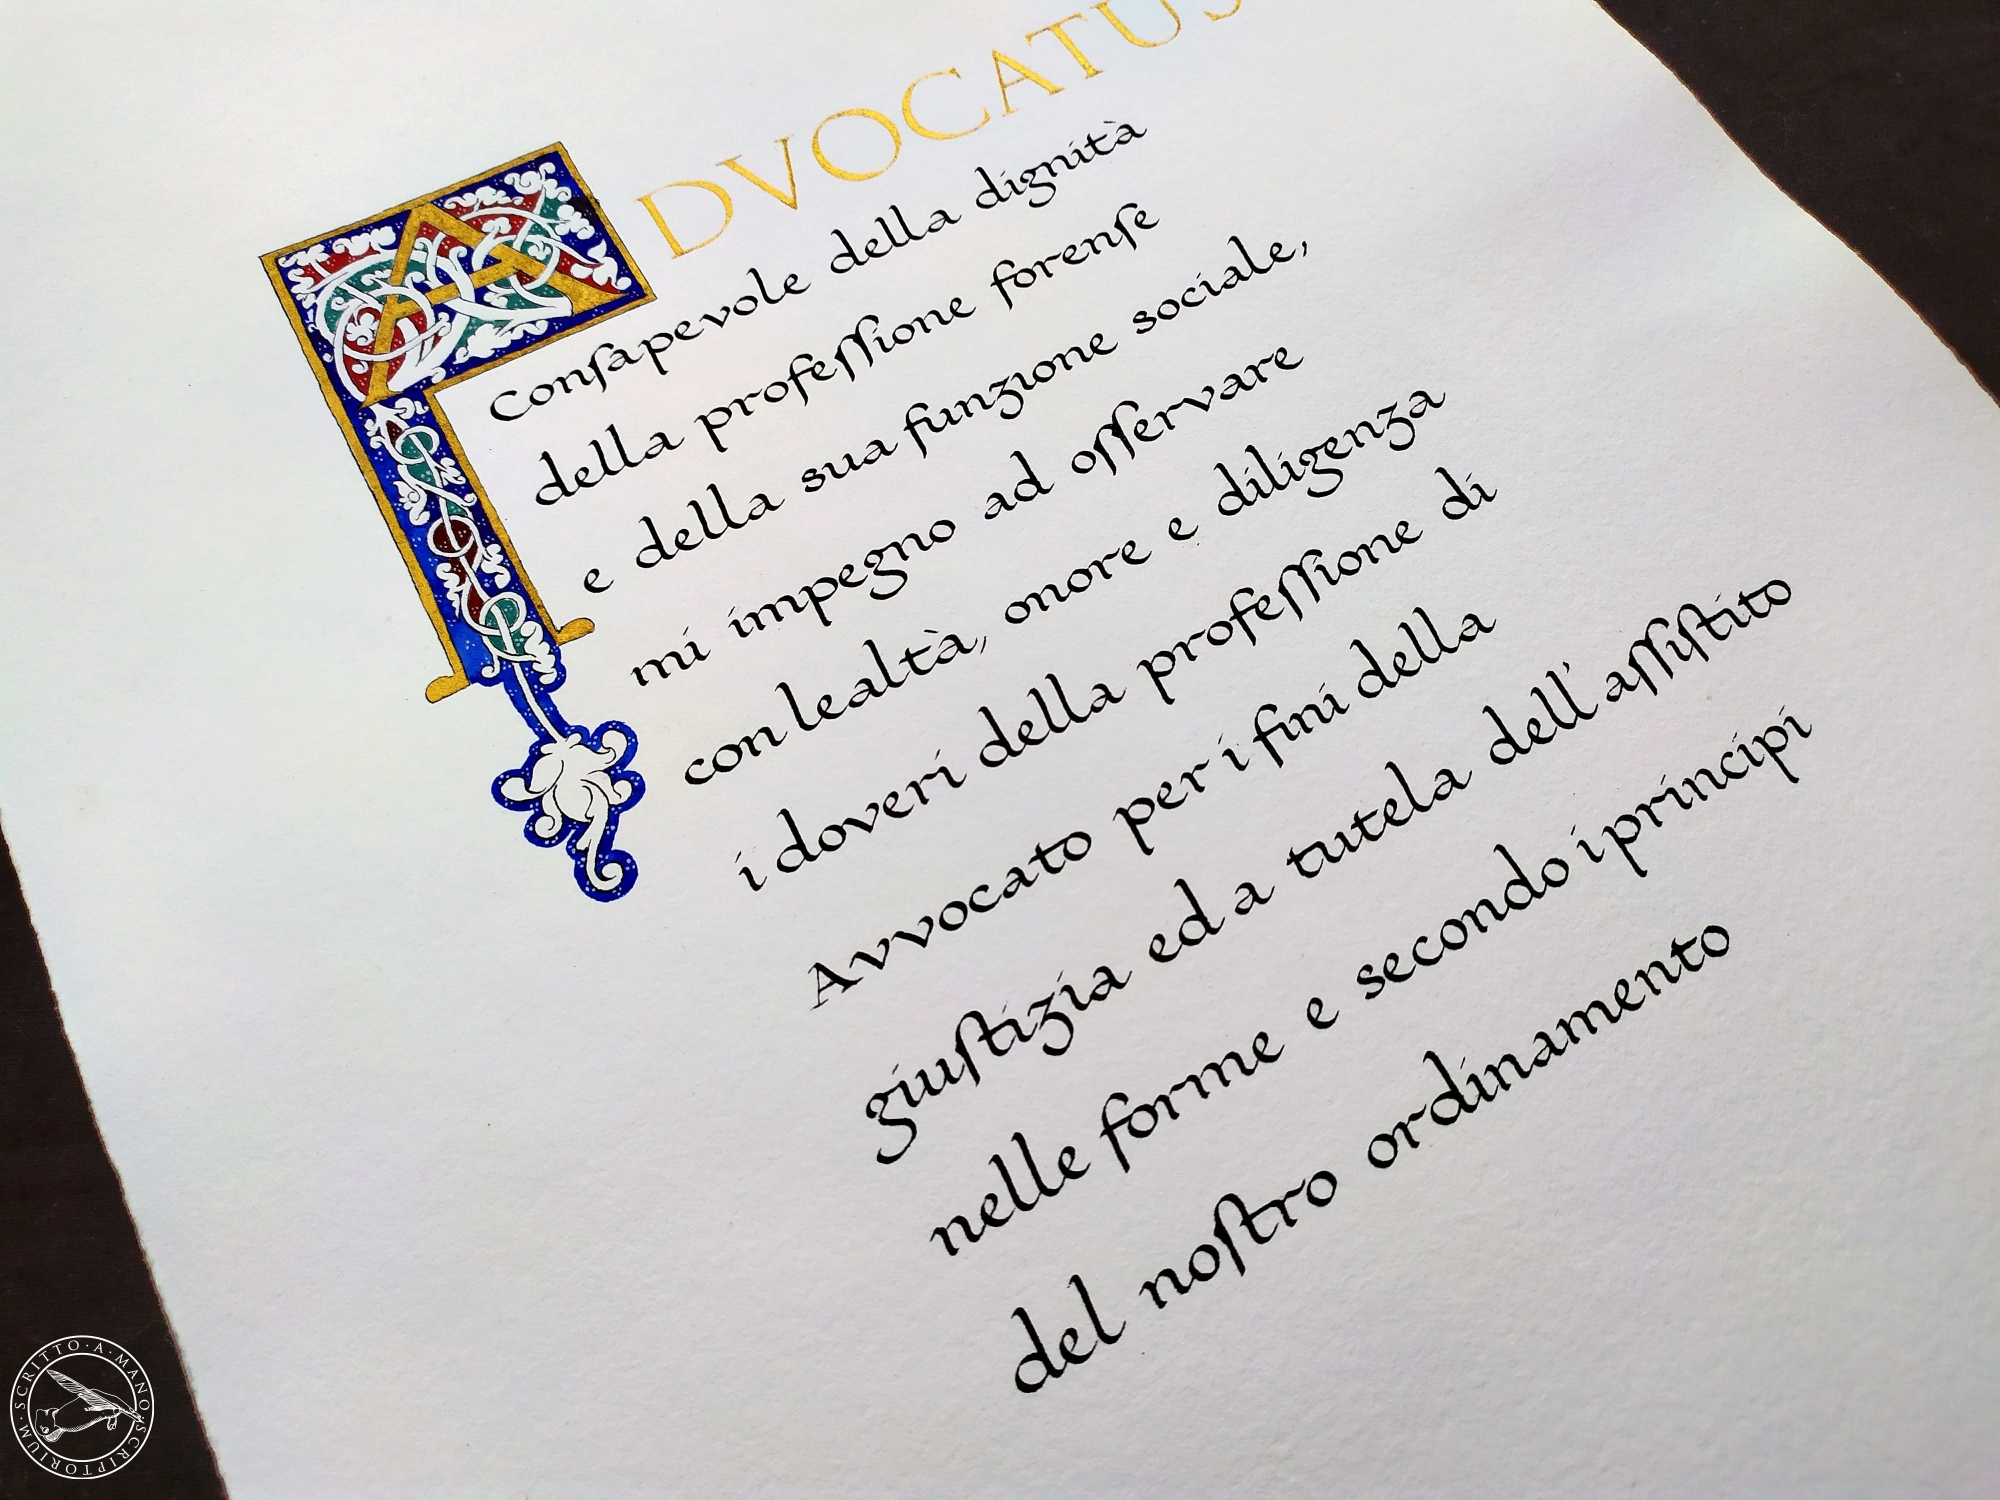 ADVOCATUS
Conſapevole della dignità
della profeſſione forenſe
e della sua funzione sociale,
mi impegno ad oſſervare
con lealtà, onore e diligenza
i doveri della profeſſione di
Avvocato per i fini della
giuſtizia ed a tutela dell'aſſiſtito
nelle forme e secondo i principi
del noſtro ordinamento
SCRITTO·A·MANO·SCRIPTORIUM·